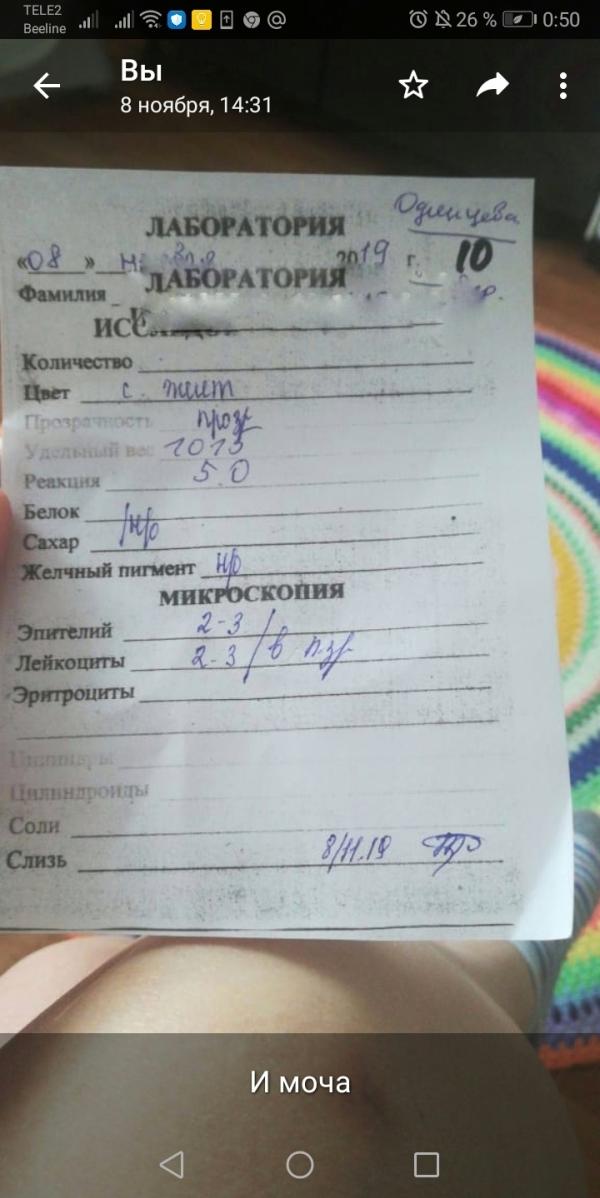 TELE2
Beeline
26 %
0:50
Вы
8 ноября, 14:31
Одинцева
ЛАБОРАТОРИЯ
«08» 2019 г. 10
ЛАБОРАТОРИЯ
Фамилия
Количество
Цвет с. желт
Прозрачность прозр
Удельный вес 1013
Реакция 5.0
Белок
Сахар /нр
Желчный пигмент нр
МИКРОСКОПИЯ
Эпителий 2-3
Лейкоциты 2-3 / в п.зр.
Эритроциты
Цилиндры
Цилиндроиды
Соли
Слизь 8/11.19
И моча